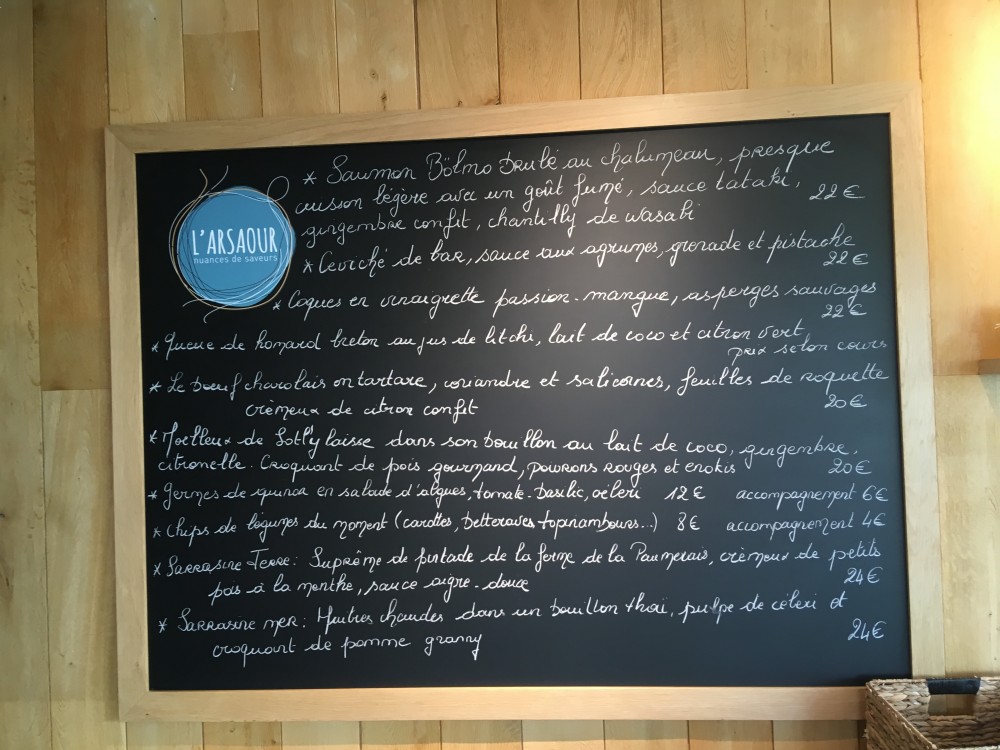 L'ARSAOUR
nuances de saveurs
* Saumon Bölmo brulé au chalumeau, presque
cuisson légère avec un goût fumé, sauce tataki,
22€
gingembre confit, chantilly de wasabi
* Ceviché de bar, sauce aux agrumes, grenade et pistache
22€
* Coques en vinaigrette passion-mangue, asperges sauvages
22€
* Queue de homard breton au jus de litchi, lait de coco et citron vert,
prix selon cours
* Le bœuf charolais en tartare, coriandre et salicornes, feuilles de roquette
crèmeux de citron confit 20€
* Moelleux de Sot l'y laisse dans son bouillon au lait de coco, gingembre,
citronelle. Croquant de pois gourmand, poivrons rouges et enokis 20€
* Germes de quinoa en salade d'algues, tomate-basilic, céleri 12€ accompagnement 6€
* Chips de légumes du moment (carottes, betteraves, topinambours...) 8€ accompagnement 4€
* Sarrasine Terre: Suprême de pintade de la ferme de la Paumerais, crèmeux de petits
pois à la menthe, sauce aigre-douce 24€
* Sarrasine mer: Huitres chaudes dans un bouillon thaï, pulpe de céleri et
croquant de pomme granny 24€